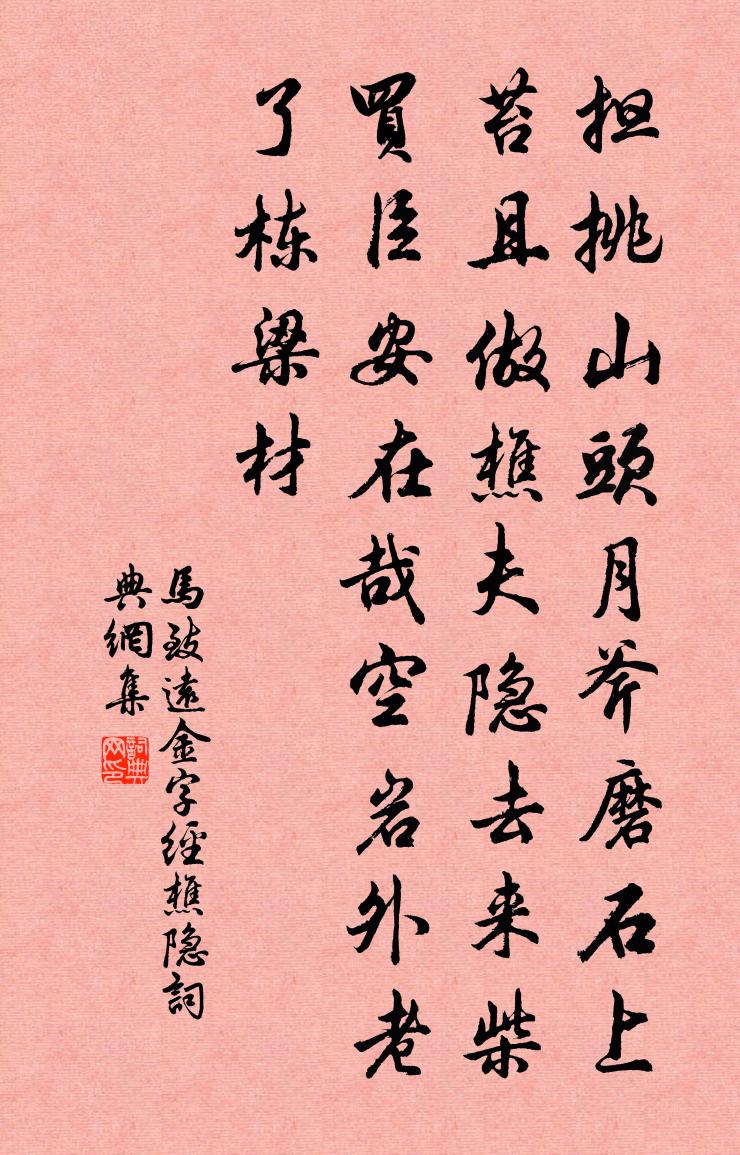 担挑山頭月斧磨石上
苔且做樵夫隐去来柴
買臣安在哉空岩外老
了栋梁材
馬致遠金字經樵隐詞
典網集
詞典网印